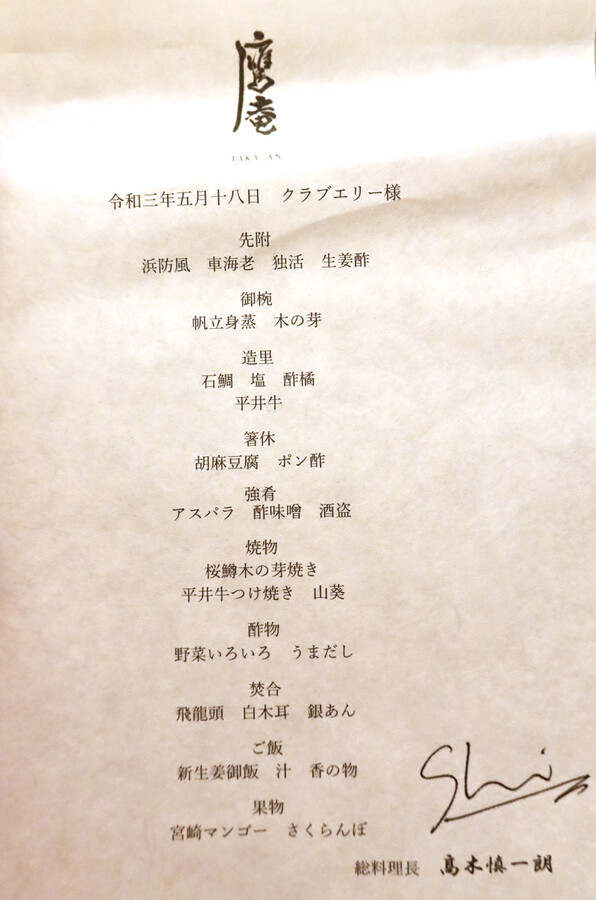 鷹庵
TAKA AN
令和三年五月十八日　クラブエリー様
先附
浜防風　車海老　独活　生姜酢
御椀
帆立身蒸　木の芽
造里
石鯛　塩　酢橘
平井牛
箸休
胡麻豆腐　ポン酢
強肴
アスパラ　酢味噌　酒盗
焼物
桜鱒木の芽焼き
平井牛つけ焼き　山葵
酢物
野菜いろいろ　うまだし
焚合
飛龍頭　白木耳　銀あん
ご飯
新生姜御飯　汁　香の物
果物
宮崎マンゴー　さくらんぼ
Shi
総料理長　髙木慎一朗